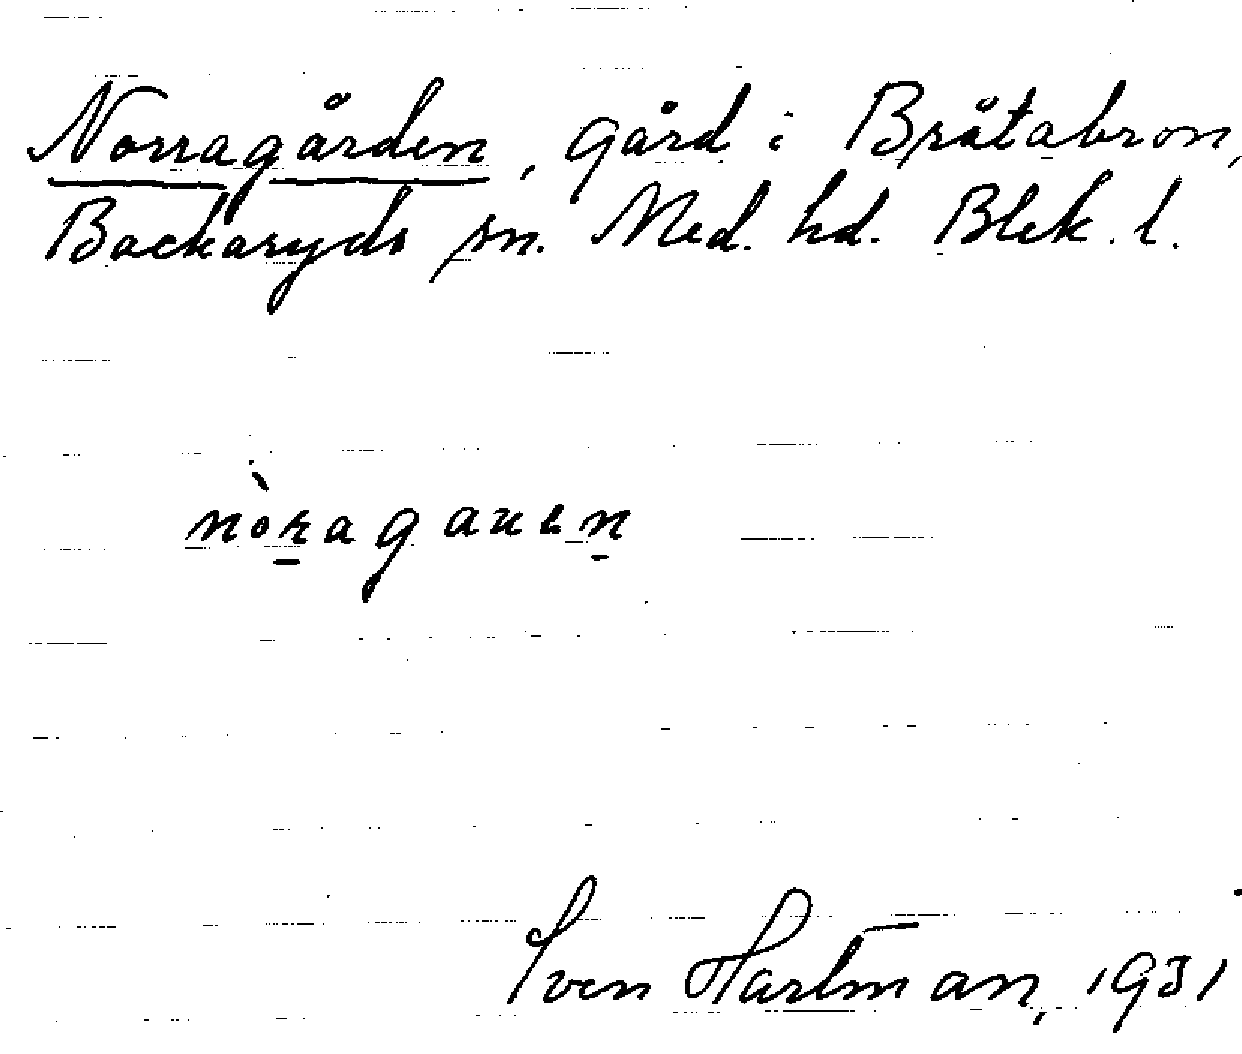 Norragården, gård i Bråtabron,
Backaryds sn. Med. hd. Blek. l.
nòragauen
Sven Hartman, 1931